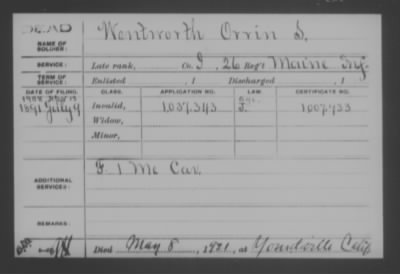 DEAD
NAME OF SOLDIER: Wentworth Orrin S.
SERVICE: Late rank, Co. I, 26 Reg't Maine Inf.
TERM OF SERVICE: Enlisted , 1 Discharged , 1
DATE OF FILING. CLASS. APPLICATION NO. LAW. CERTIFICATE NO.
1891 July 9 Invalid, 1,037,343 1007,733
Widow,
Minor,
ADDITIONAL SERVICES: F. 1 Me Cav.
REMARKS:
Died May 8, 1921, at Yountville Calif.